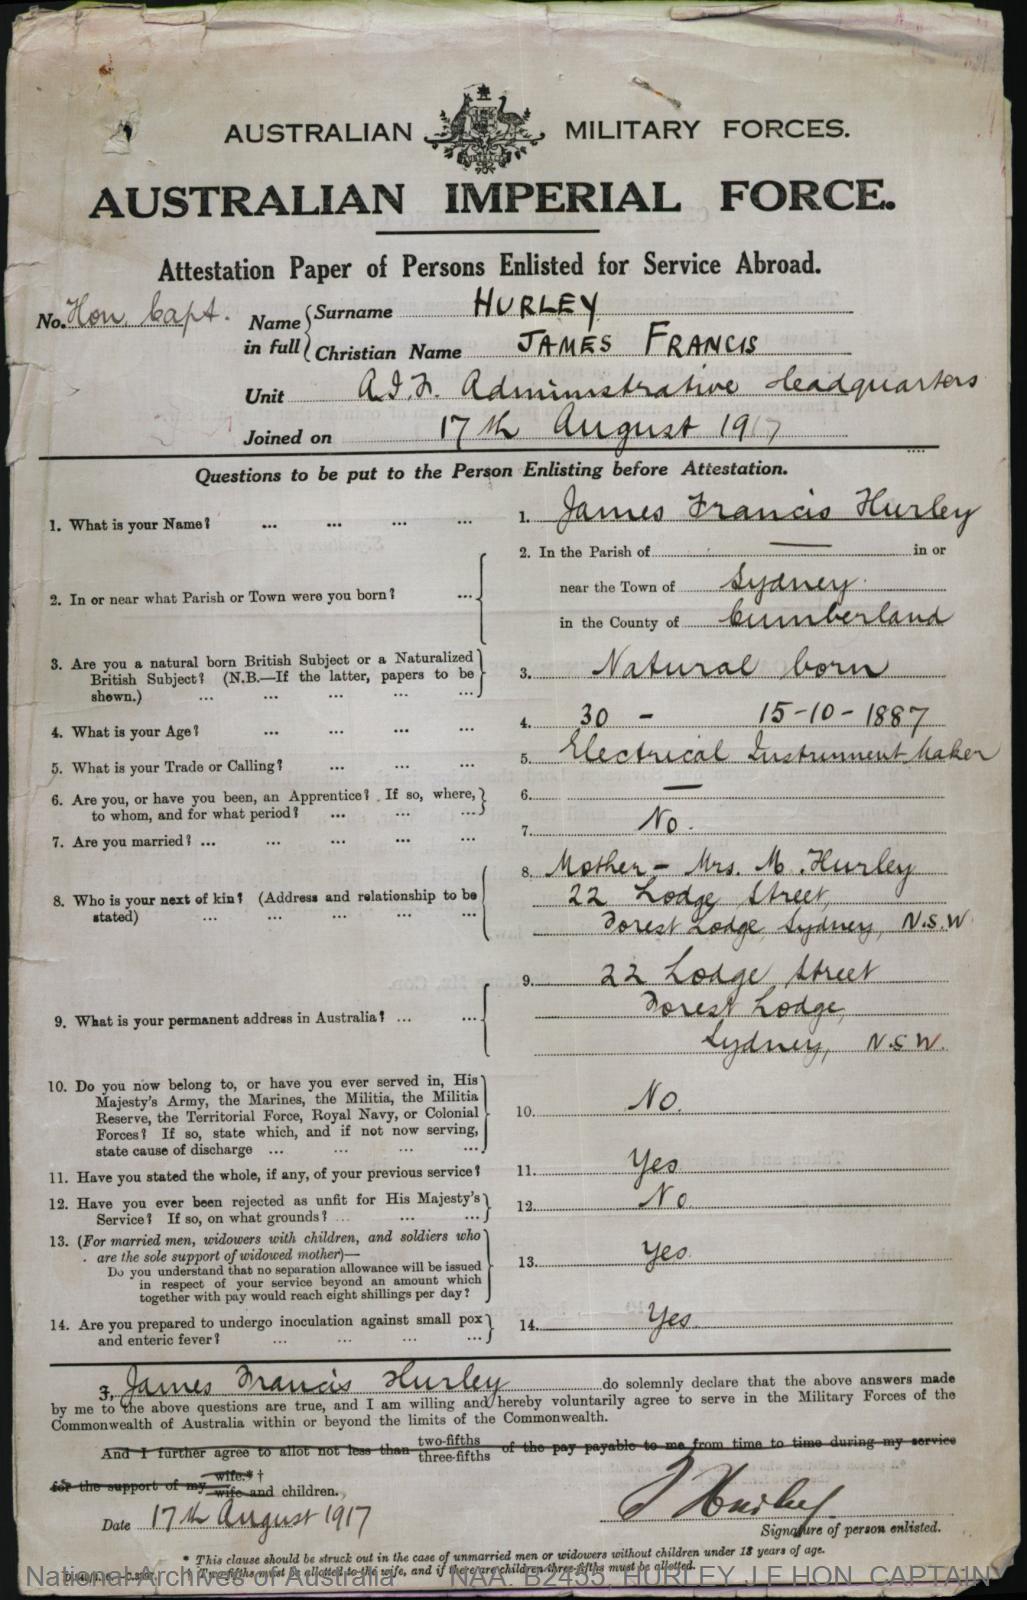 AUSTRALIAN MILITARY FORCES.
AUSTRALIAN IMPERIAL FORCE.
Attestation Paper of Persons Enlisted for Service Abroad.
No. Hon. Capt. Name in full { Surname HURLEY
Christian Name JAMES FRANCIS
Unit A.I.F. Administrative Headquarters
Joined on 17th August 1917
Questions to be put to the Person Enlisting before Attestation.
1. What is your Name? ... ... ... ... 1. James Francis Hurley
2. In or near what Parish or Town were you born? ... 2. In the Parish of — in or
near the Town of Sydney
in the County of Cumberland
3. Are you a natural born British Subject or a Naturalized
British Subject? (N.B.—If the latter, papers to be
shewn.) ... ... ... ... ... 3. Natural born
4. What is your Age? ... ... ... 4. 30 – 15-10-1887
5. What is your Trade or Calling? ... ... ... 5. Electrical Instrument Maker
6. Are you, or have you been, an Apprentice? If so, where,
to whom, and for what period? ... ... ... 6. —
7. Are you married? ... ... ... ... 7. No.
8. Who is your next of kin? (Address and relationship to be
stated) ... ... ... ... ... 8. Mother – Mrs. M. Hurley
22 Lodge Street,
Forest Lodge, Sydney, N.S.W
9. What is your permanent address in Australia? ... ... 9. 22 Lodge Street
Forest Lodge,
Sydney, N.S.W.
10. Do you now belong to, or have you ever served in, His
Majesty's Army, the Marines, the Militia, the Militia
Reserve, the Territorial Force, Royal Navy, or Colonial
Forces? If so, state which, and if not now serving,
state cause of discharge ... ... ... ... 10. No.
11. Have you stated the whole, if any, of your previous service? 11. Yes
12. Have you ever been rejected as unfit for His Majesty's
Service? If so, on what grounds? ... ... ... 12. No.
13. (For married men, widowers with children, and soldiers who
are the sole support of widowed mother)—
Do you understand that no separation allowance will be issued
in respect of your service beyond an amount which
together with pay would reach eight shillings per day? 13. Yes.
14. Are you prepared to undergo inoculation against small pox
and enteric fever? ... ... ... ... 14. Yes.
I, James Francis Hurley do solemnly declare that the above answers made
by me to the above questions are true, and I am willing and hereby voluntarily agree to serve in the Military Forces of the
Commonwealth of Australia within or beyond the limits of the Commonwealth.
And I further agree to allot not less than two-fifths three-fifths of the pay payable to me from time to time during my service
for the support of my wife.* † wife and children.
Date 17th August 1917 J Hurley
Signature of person enlisted.
* This clause should be struck out in the case of unmarried men or widowers without children under 18 years of age.
† Two-fifths must be allotted to the wife, and if there are children three-fifths must be allotted.
National Archives of Australia NAA: B2455, HURLEY J F HON. CAPTAIN